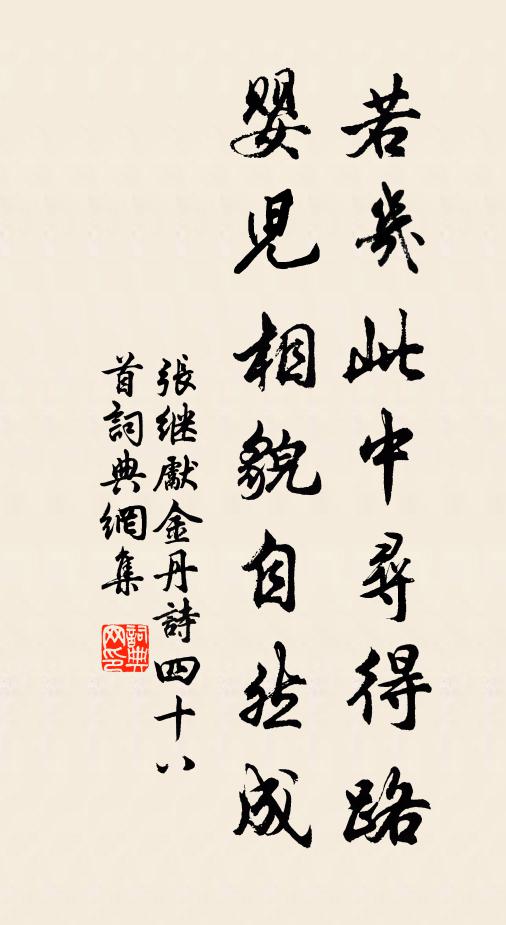 若幾此中尋得路
嬰兒相貌自然成
張继獻金丹詩四十八
首詞典網集
詞典
网印